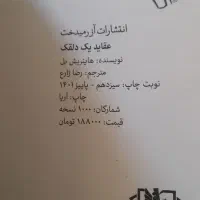 انتشارات آزرمیدخت
عقاید یک دلقک
نویسنده: هاینریش بل
مترجم: رضا زارع
نوبت چاپ: سیزدهم - پاییز ۱۴۰۱
چاپ: آریا
شمارگان: ۱۰۰۰ نسخه
قیمت: ۱۸۸۰۰۰ تومان